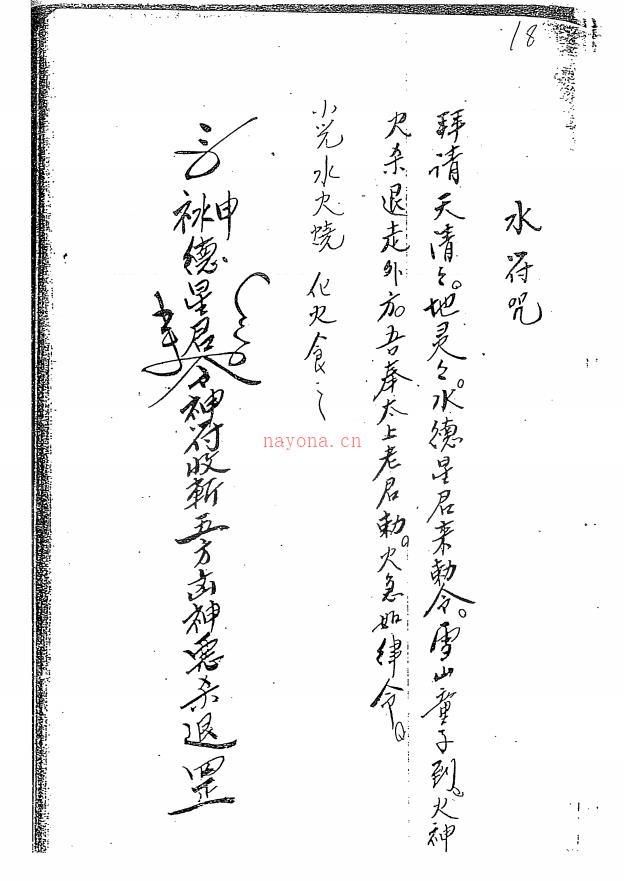 18
水符咒
拜请天清々。地灵々。水德星君来勅令。雪山童子到。火神
火杀退走外方。吾奉太上老君勅。火急如律令。
小児水火烧 化火食之
神水德星君令神符收斬五方凶神恶杀退罡
nayona.cn